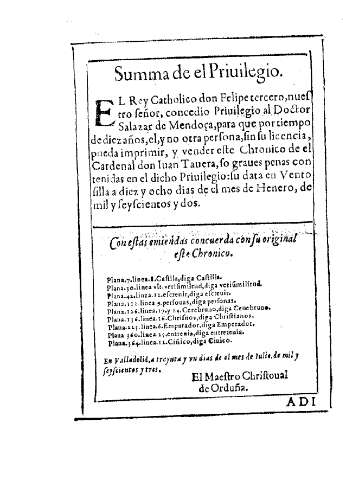 Summa de el Priuilegio.
EL Rey Catholico don Felipe tercero, nues
tro señor, concedio Priuilegio al Doctor
Salazar de Mendoça, para que por tiempo
de diez años, el, y no otra persona, sin su licencia,
pueda imprimir, y vender este Chronico de el
Cardenal don Iuan Tauera, so graues penas con
tenidas en el dicho Priuilegio: su data en Vento
silla a diez y ocho dias de el mes de Henero, de
mil y seyscientos y dos.
Con estas emiendas concuerda con su original
este Chronico.
Plana.7.linea.8.Castila, diga Castilla.
Plana.30.linea vlt. verisimilitud, diga verisimilitud.
Plana.42.linea.12.escreuir, diga escreuir.
linea.9.persouas, diga personas.
Plana.126.linea.17.y 24.Cerebruno, diga Cenebruno.
Plana.136.linea.26.Chrisnos, diga Christianos.
linea.6.Emparador, diga Emperador.
Plana 360.linea 25.entrenia, diga entretenia.
Plana.364.linea.11.Ciuico, diga Ciuico.
En Valladolid, a treynta y vn dias de el mes de Iulio, de mil y
seyscientos y tres.
El Maestro Christoual
de Orduña.
ADI